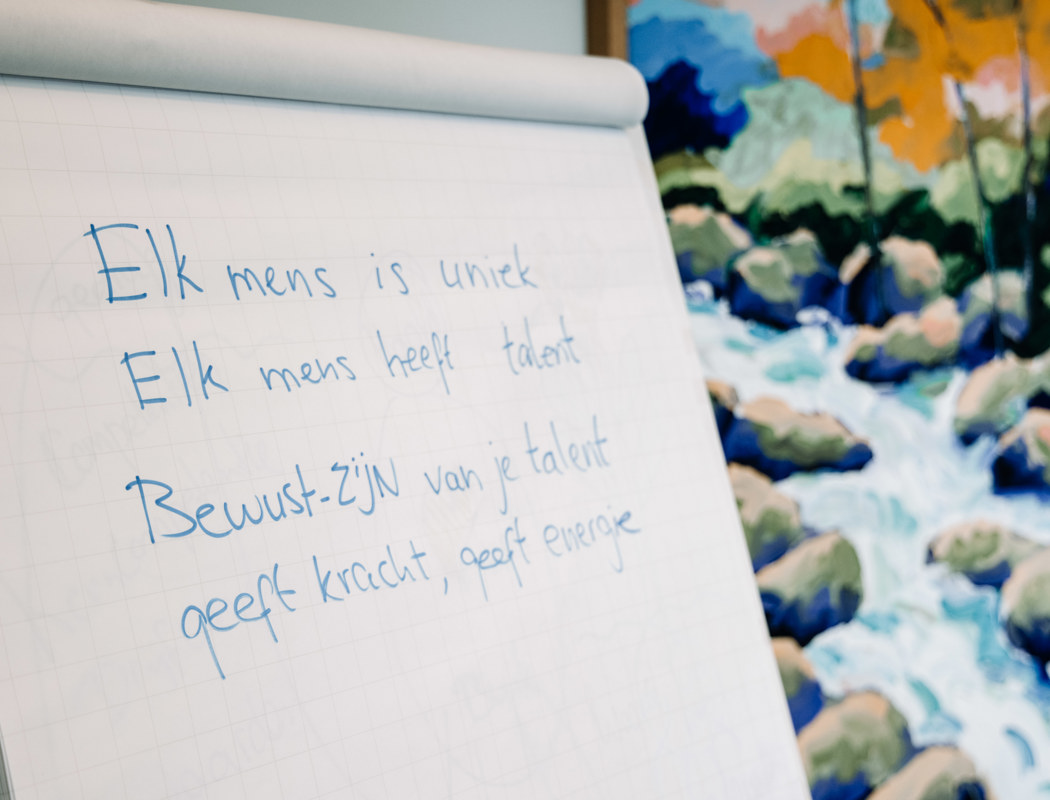 Elk mens is uniek
Elk mens heeft talent
Bewust-zijN van je talent
geeft kracht, geeft energie